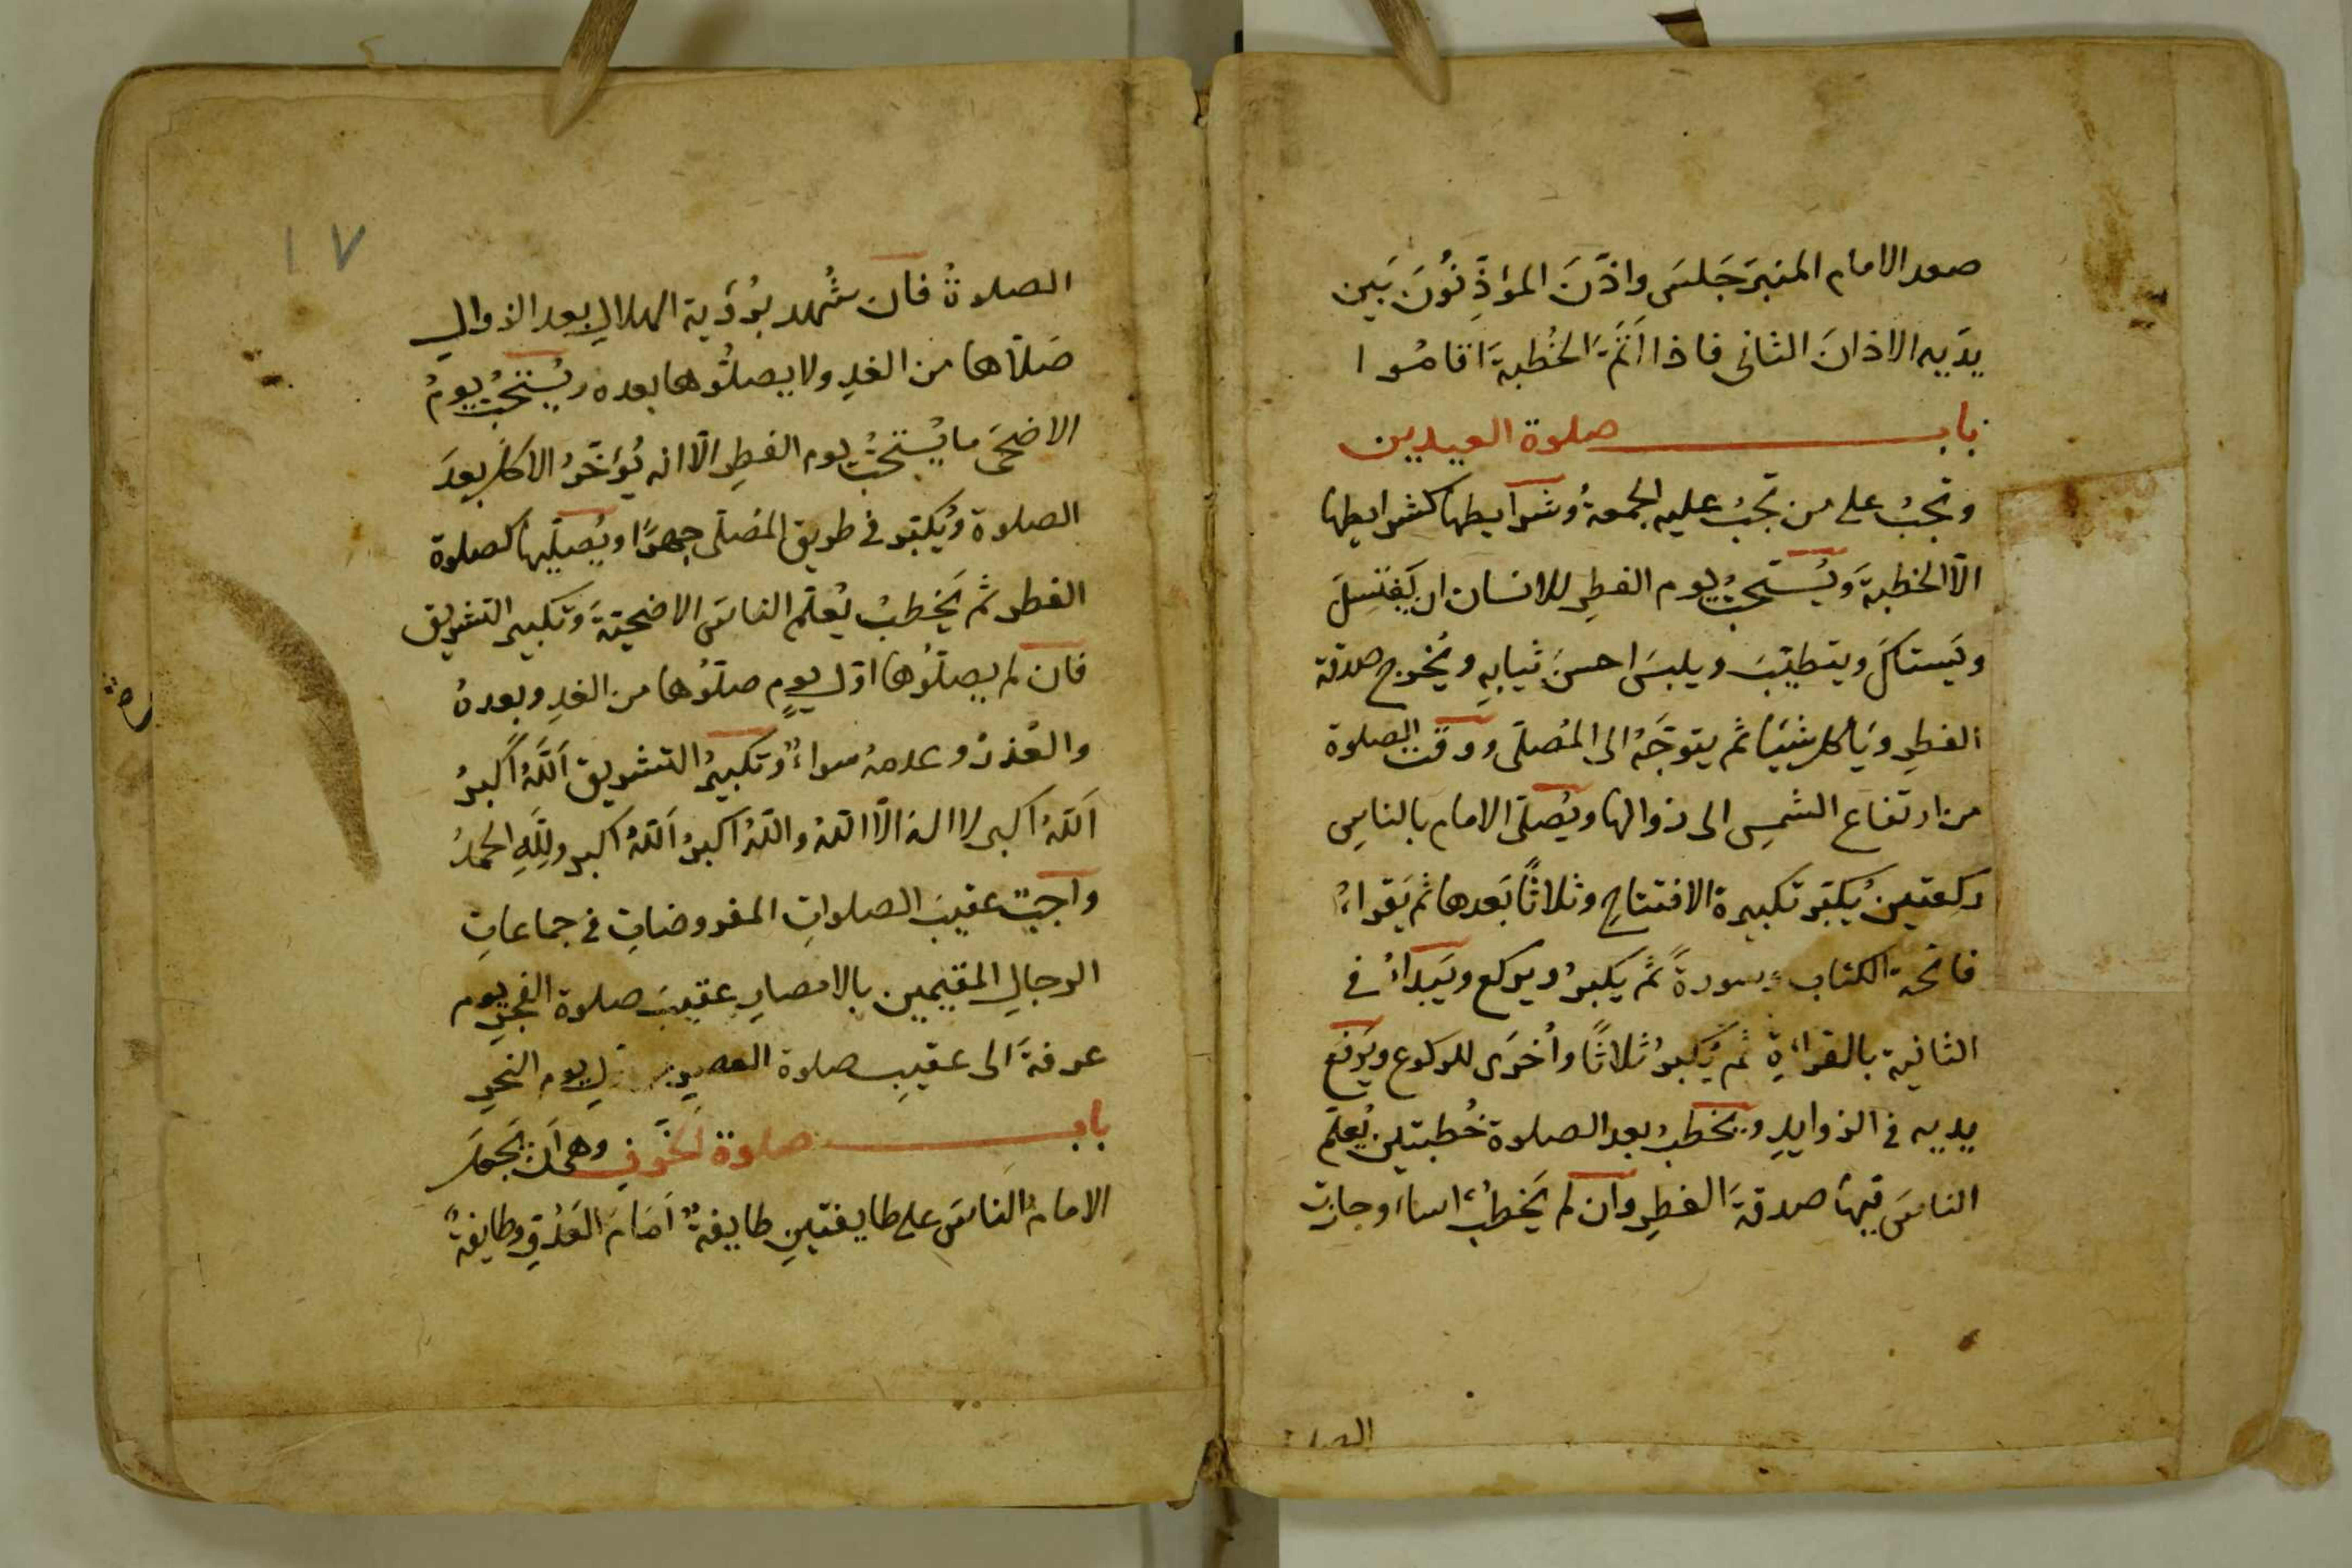 صعد الامام المنبرَ جَلسَ واذّنَ المؤذِّنُونَ بَين
يدَيه الاذانَ الثانى فاذا اَتمَّ الخُطبةَ اقامُوا
باب صلوة العيدين
وتجبُ على من تجبُ عليه الجمعةُ وشرايطها كشرايطها
الّا الخطبةَ ويُستحبُّ يوم الفطرِ للانسان ان يَغتسِلَ
ويَستاكَ ويتطيّبَ ويلبسَ احسنَ ثيابهِ ويُخرج صدقة
الفطرِ ويَأكل شيئًا ثم يتوجَّهُ الى المُصلّى ووقتُ الصلوة
من ارتفاع الشمسِ الى زوالها ويُصلّى الامام بالناسِ
ركعتين يُكبّر تكبيرة الافتتاحِ وثلاثًا بَعدها ثم يَقراءُ
فاتحة الكتاب وسورةً ثم يكبرُ ويركع ويَبداءُ في
الثانية بالقراءةِ ثم يُكبرُ ثلاثًا واُخرَى للركوع ويَرفع
يديه في الزوايدِ ويخطبُ بعد الصلوة خُطبتين يُعلّم
الناسَ فيها صدقةَ الفطرِ وان لم يَخطُب اساء وجازت
١٧
الصلوةُ فان شُهد برُؤية الهلالِ بعد الزوالِ
صَلّاها من الغدِ ولا يصلُّوها بعده ويُستحبُّ يومُ
الاضحَى ما يُستحبُّ يوم الفطرِ الّا انه يُؤخّرُ الاكلَ بعدَ
الصلوة ويُكبّر في طريق المُصلّى جهرًا ويُصلّيها كصلوة
الفطر ثم يَخطبُ يُعلّم الناسَ الاضحيّةَ وتكبير التشريق
فان لم يصلّوُها اوّل يومٍ صلّوُها من الغدِ وبعدهُ
والعُذرُ وعدمهُ سواءٌ وتكبيرُ التشريق اَللّهُ اَكبرُ
اَللّهُ اكبر لا اله الّا اللّهُ واللّهُ اكبرُ اَللّهُ اكبر ولِلّهِ الحمدُ
واجبٌ عقيبَ الصلواتِ المفروضاتِ في جماعاتِ
الرجالِ المقيمين بالامصارِ عقيبَ صلوة الفجرِ يوم
عرفةَ الى عقيبِ صلوة العصرِ يوم النحرِ
باب صلوة الخَوفِ وهى اَن يَجعلَ
الامامُ الناسَ على طايفتينِ طايفةٌ اَمَامَ العَدُوِّ وطايفةٌ